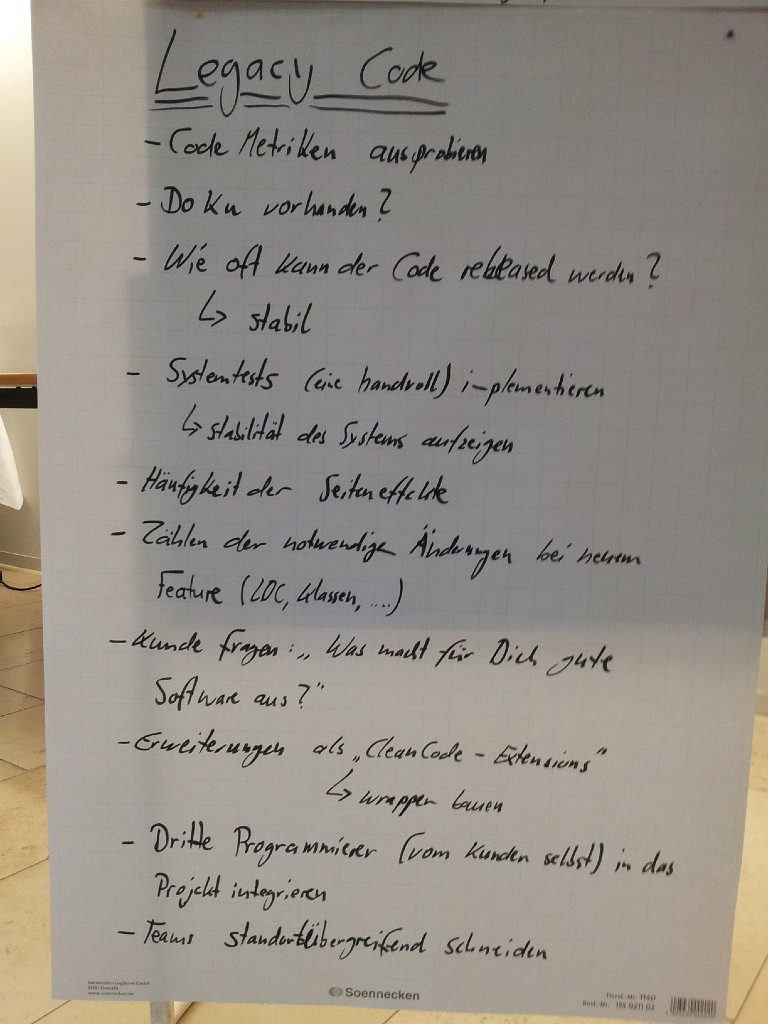 Legacy Code
- Code Metriken ausprobieren
- Doku vorhanden?
- Wie oft kann der Code released werden?
↳ stabil
- Systemtests (eine handvoll) implementieren
↳ stabilität des Systems aufzeigen
- Häufigkeit der Seiteneffekte
- Zählen der notwendige Änderungen bei neuem
Feature (LOC, Klassen, ....)
- Kunde fragen: „Was macht für Dich gute
Software aus?"
- Erweiterungen als „CleanCode - Extensions"
↳ wrapper bauen
- Dritte Programmierer (vom Kunden selbst) in das
Projekt integrieren
- Teams standortübergreifend schneiden
Soennecken
www.soennecken.de